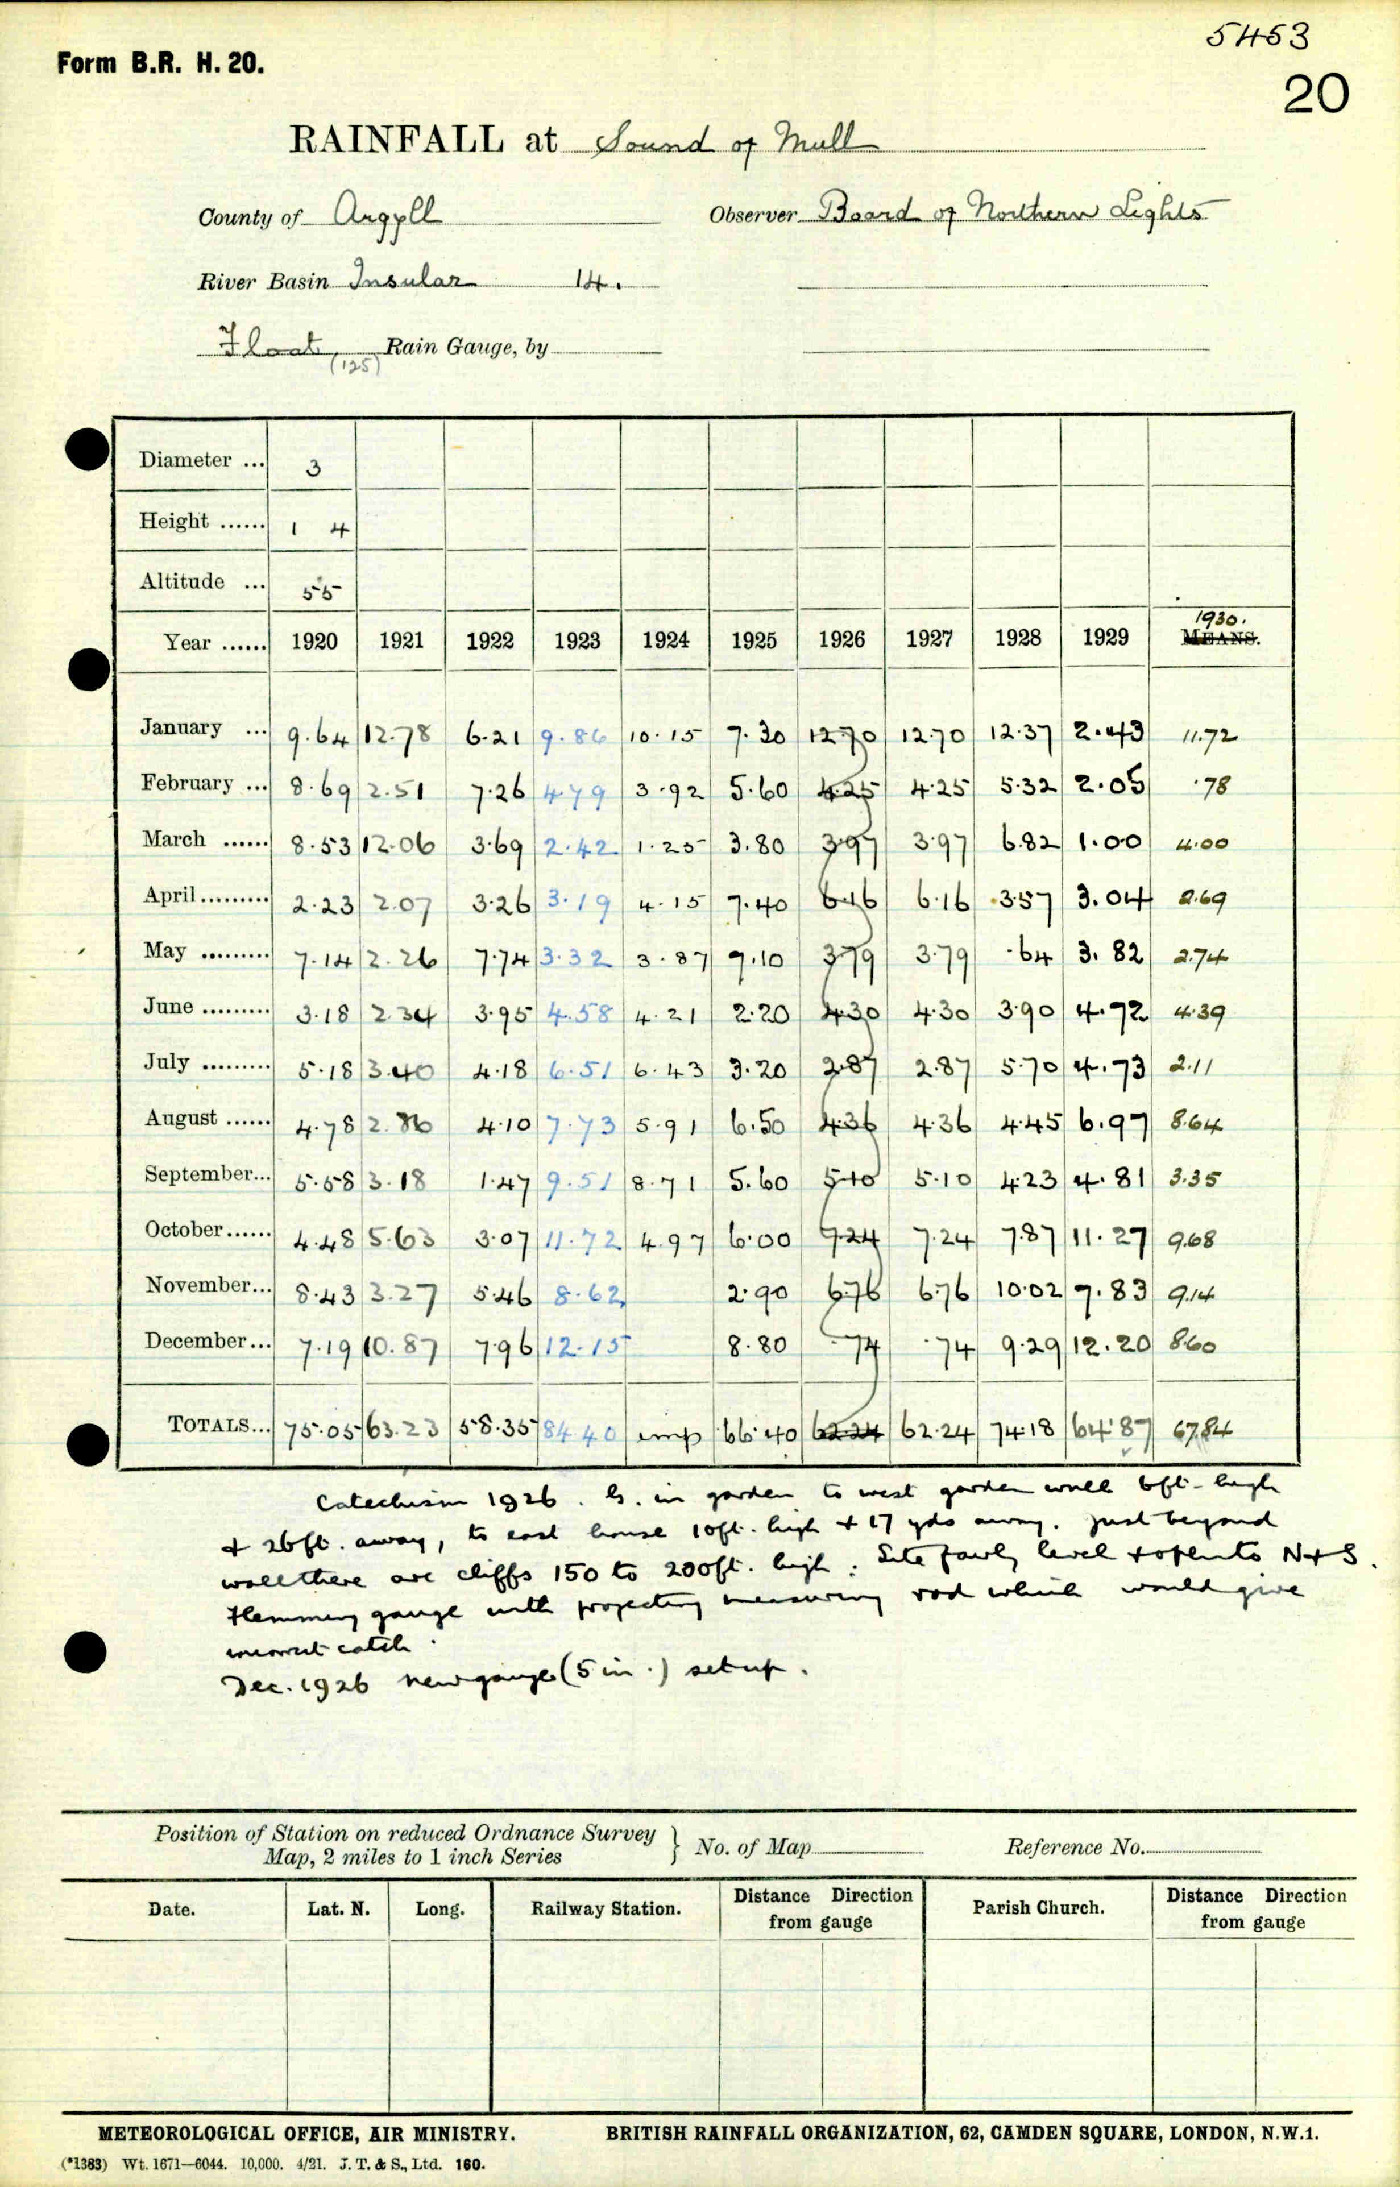 5453
Form B.R. H. 20.
20
RAINFALL at Sound of Mull
County of Argyll Observer Board of Northern Lights
River Basin Insular 14.
Float (125) Rain Gauge, by
Diameter ... 3
Height ...... 1 4
Altitude ... 55
1930.
Year ...... 1920 1921 1922 1923 1924 1925 1926 1927 1928 1929 MEANS.
January ... 9.64 12.78 6.21 9.86 10.15 7.30 12.70 12.70 12.37 2.43 11.72
February ... 8.69 2.51 7.26 4.79 3.92 5.60 4.25 4.25 5.32 2.05 .78
March ...... 8.53 12.06 3.69 2.42 1.25 3.80 3.97 3.97 6.82 1.00 4.00
April ......... 2.23 2.07 3.26 3.19 4.15 7.40 6.16 6.16 3.57 3.04 2.69
May ......... 7.14 2.26 7.74 3.32 3.87 7.10 3.79 3.79 .64 3.82 2.74
June ......... 3.18 2.34 3.95 4.58 4.21 2.20 4.30 4.30 3.90 4.72 4.39
July ......... 5.18 3.40 4.18 6.51 6.43 3.20 2.87 2.87 5.70 4.73 2.11
August ...... 4.78 2.86 4.10 7.73 5.91 6.50 4.36 4.36 4.45 6.97 8.64
September... 5.58 3.18 1.47 9.51 8.71 5.60 5.10 5.10 4.23 4.81 3.35
October ...... 4.48 5.63 3.07 11.72 4.97 6.00 7.24 7.24 7.87 11.27 9.68
November... 8.43 3.27 5.46 8.62 2.90 6.76 6.76 10.02 7.83 9.14
December... 7.19 10.87 7.96 12.15 8.80 .74 .74 9.29 12.20 8.60
TOTALS... 75.05 63.23 58.35 84.40 imp 66.40 62.24 62.24 74.18 64.87 67.84
Catechism 1926. G. in garden to west garden wall 6ft. high
+ 26ft. away, to east house 10ft. high + 17 yds away. Just beyond
wall there are cliffs 150 to 200ft. high. Site fairly level + open to N+S.
Flemming gauge with projecting measuring rod which would give
incorrect catch.
Dec. 1926 new gauge (5 in.) set up.
Position of Station on reduced Ordnance Survey
Map, 2 miles to 1 inch Series } No. of Map Reference No.
Date. Lat. N. Long. Railway Station. Distance Direction from gauge Parish Church. Distance Direction from gauge
METEOROLOGICAL OFFICE, AIR MINISTRY. BRITISH RAINFALL ORGANIZATION, 62, CAMDEN SQUARE, LONDON, N.W.1.
(*1383) Wt. 1671—6044. 10,000. 4/21. J. T. & S., Ltd. 160.